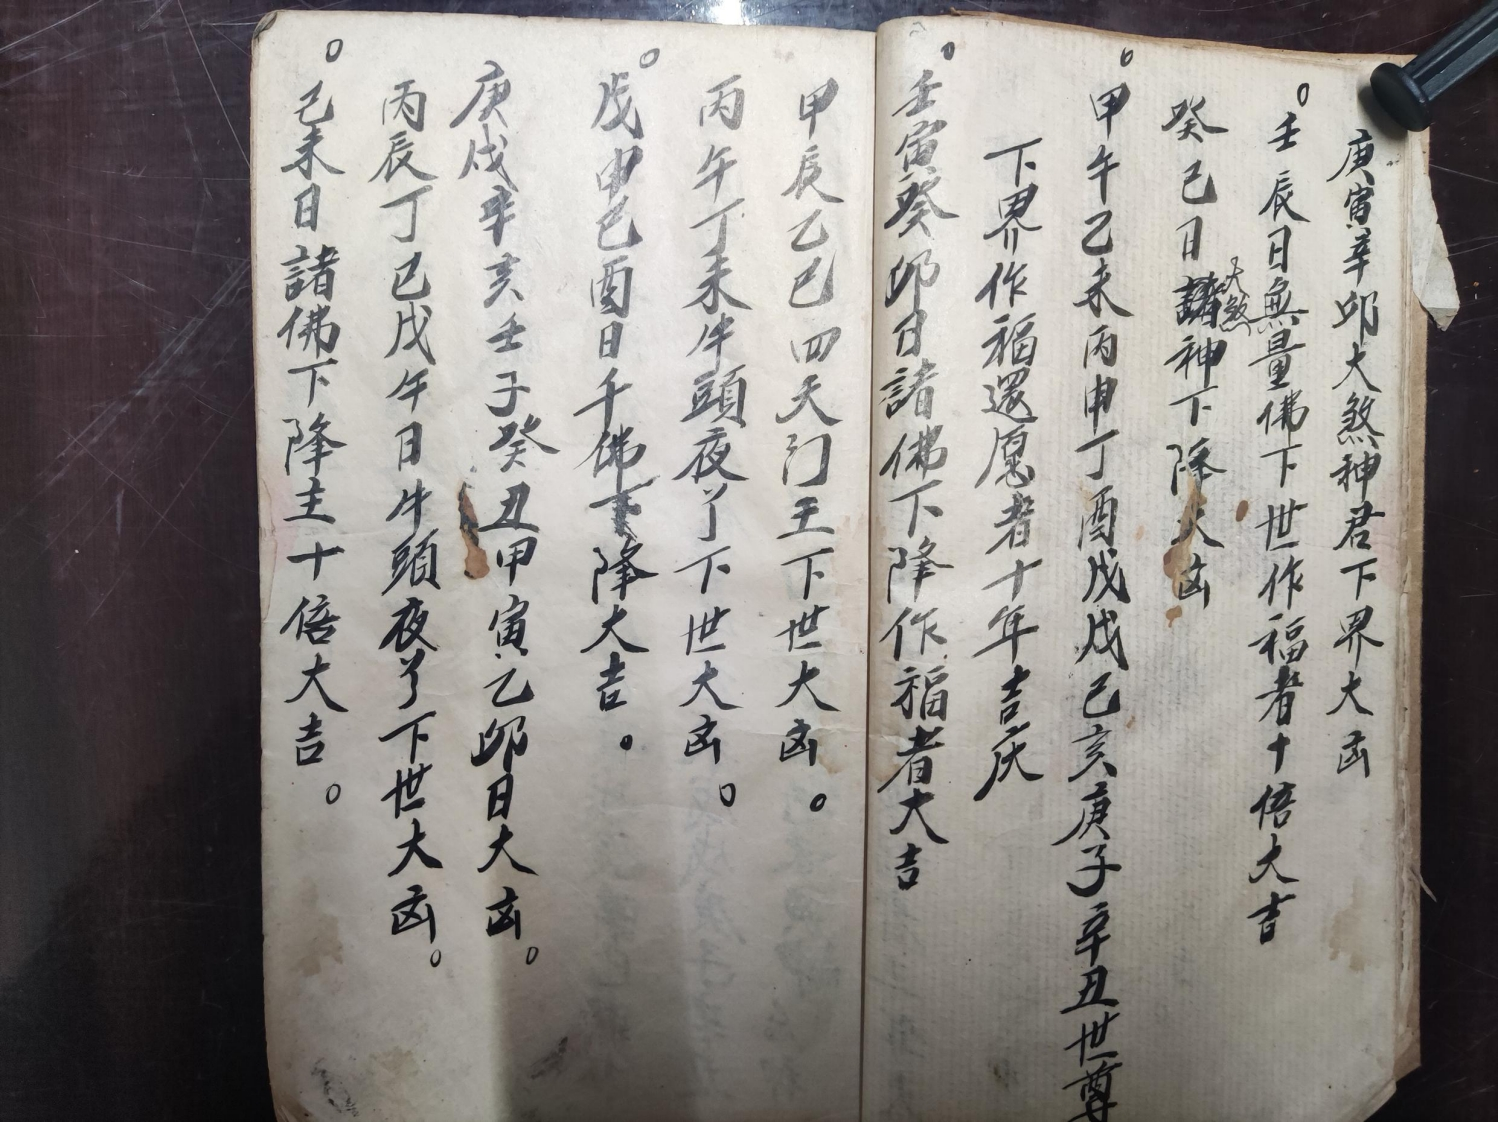 庚寅辛卯大煞神君下界大凶
○壬辰日無量佛下世作福者十倍大吉
癸巳日大煞神下降大凶
○甲午乙未丙申丁酉戊戌己亥庚子辛丑世尊
下界作福還愿者十年吉庆
○壬寅癸卯日諸佛下降作福者大吉
甲辰乙巳四天门王下世大凶。
丙午丁未牛頭夜丫下世大凶。
○戊申己酉日千佛下降大吉。
庚戌辛亥壬子癸丑甲寅乙卯日大凶。
丙辰丁巳戊午日牛頭夜丫下世大凶。
○己未日諸佛下降主十倍大吉。